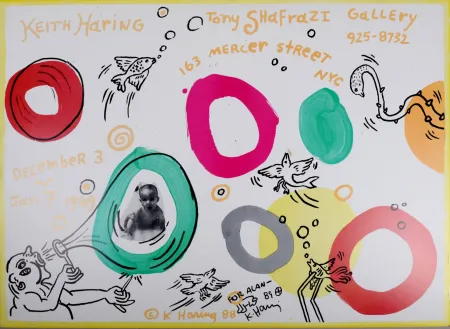 KEITH HARING
TONY SHAFRAZI GALLERY
163 MERCER STREET NYC
925-8732
DECEMBER 3
FOR ALAN-
K. Haring
© K Haring 88